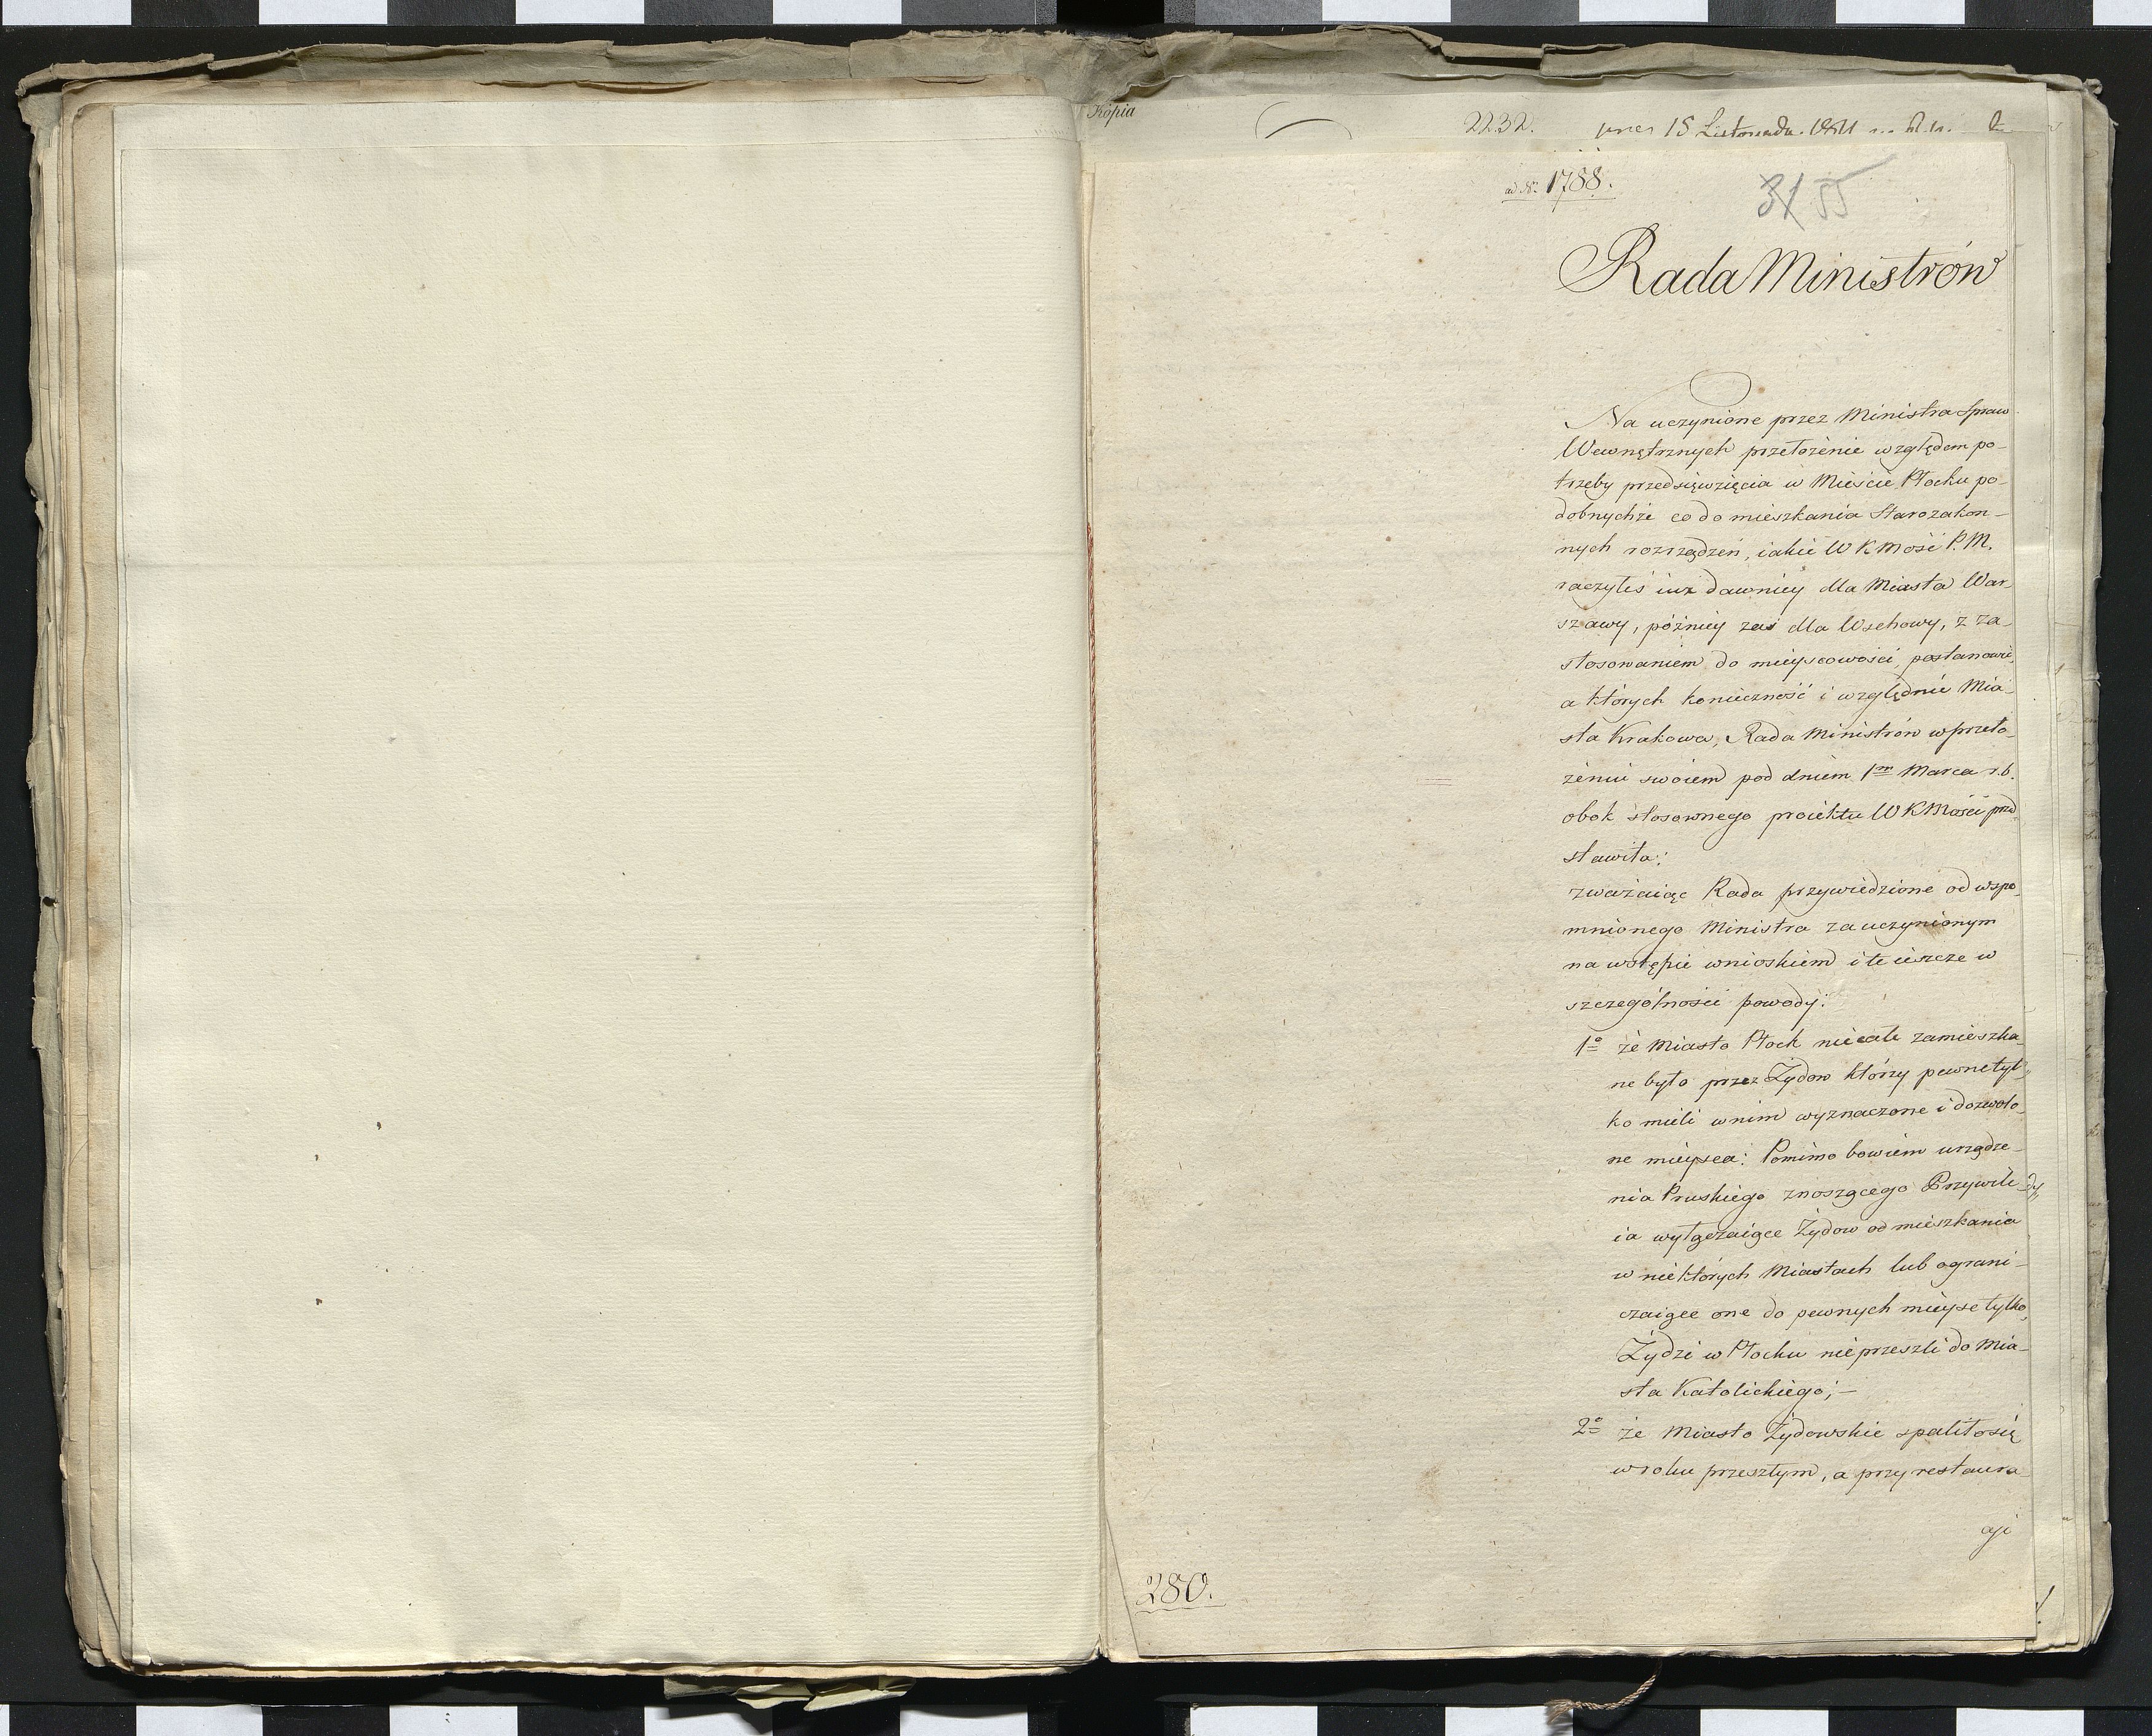 Kopia
2232. 15 Listopada
ad Nr. 1788.
31 55
Rada Ministrów
Na uczynione przez Ministra Spraw
Wewnętrznych przełożenie względem po-
trzeby przedsięwzięcia w Mieście Płocku po-
dobnychże co do mieszkania Starozakon-
nych rozrządzeń, iakie WKMość P. M.
raczyłeś iuż dawniey dla Miasta War-
szawy, późniey zaś dla Wschowy, z za-
stosowaniem do mieyscowości, postanowić,
a których konieczność i względnie Mia-
sta Krakowa, Rada Ministrów w przeło-
żeniu swoiem pod dniem 1m Marca r. b.
obok stosownego proiektu WKMości prze
stawiła:
zważaiąc Rada przywiedzione od wspo-
mnionego Ministra za uczynionym
na wstępie wnioskiem i te ieszcze w
szczególności powody:
1o że Miasto Płock nie całe zamieszka-
ne było przez Żydow którzy pewne tyl-
ko mieli w nim wyznaczone i dozwolo-
ne mieysca: Pomimo bowiem urządze-
nia Pruskiego znoszącego Przywile-
ia wyłączaiące Żydow od mieszkania
w niektórych Miastach lub ograni-
czaiące one do pewnych mieysc tylko,
Żydzi w Płocku nie przeszli do Mia-
sta Katolickiego; -
2o że Miasto Żydowskie spaliło się
w roku przeszłym, a przy restaura-
cyi
280.